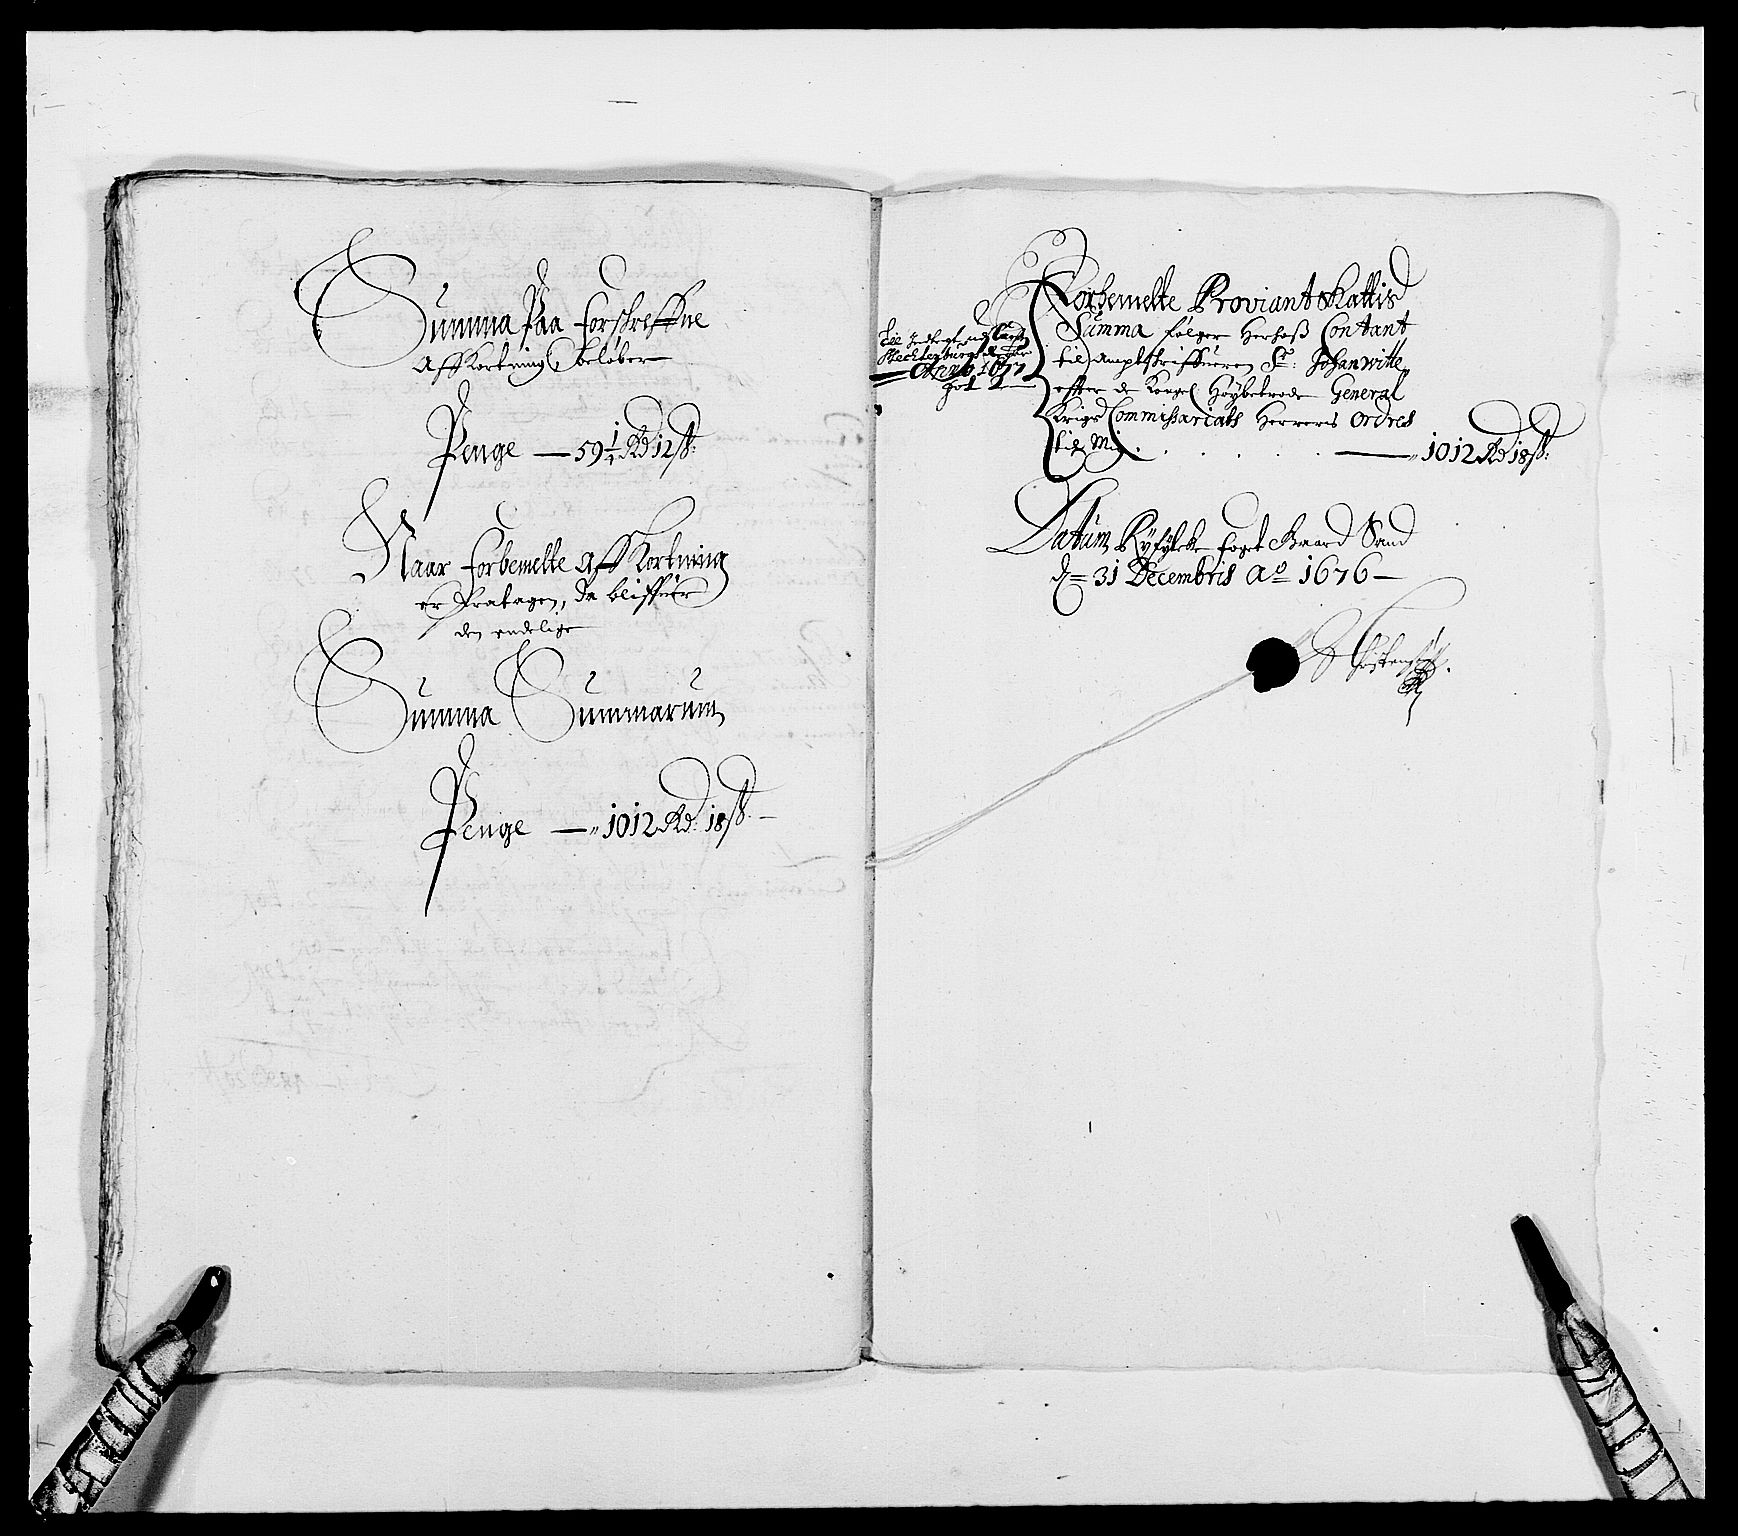 Summa Paa forschreffne
Aff Kortning, beløber
Penge — 59 1/4 Rd 12 ß:
Naar forbemelte Aff Kortning
er fratagen, da bliffuer
den endelige
Summa Summarum
Penge — 1012 Rd: 18 ß —
Anno 1677
Forbemelte Proviant Skattis
Summa følger herhoß Contant
til Amptschriffueren Sr: Johan Witte,
effter de Kongel Høybetrode General
Krigs Commissariats Herreris Ordres
— 1012 Rd 18 ß:
Datum Ryfylcke foget Gaard Sand
d= 31 Decembris Ao 1676 —